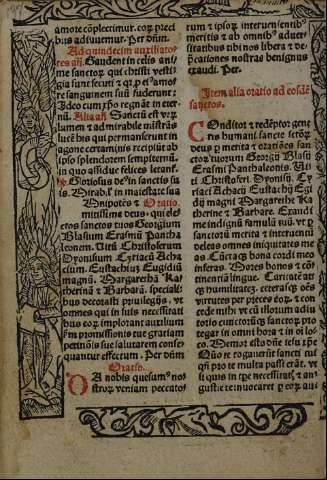 amore cõplectimur. eoꝝ preci
bus adiuuemur. Per dñm.
Ad quindecim auxiliato
res añ. Gaudent in celis ani
me sanctoꝝ qui christi vesti
gia sunt secuti & qꝛ ꝓ eiꝰ amo
re sanguinem suũ fuderunt:
Ideo cum xp̃o regnãt in eter
nũ. Alia añ. Sanctũ est veꝝ
lumen & admirabile mĩstrãs
lucẽ his qui permanserunt in
agone certaminis recipiũt ab
ipso splendorem sempiternũ.
in quo assidue felices letant̃.
℣. Gloriosus deꝰ in sanctis su
is. Mirabil̃ in maiestate sua
Mnipotẽs & Oratio
mitissime deus. qui ele
ctos sanctos tuos Georgium
Blasium Erasmũ Pantha
leonum. Vitũ Christoferum
Dyonisum Cyriacũ Acha
cium. Eustachiũ Egidiũ
magnũ. Margarethã Ka
therinã & Barbarã. speciali
bus decorasti priuilegijs. vt
omnes qui in suis necessitati
bus eoꝝ implorant auxilium
ẽm promissionis tue gratiam
petitiõis sue salutarem conse
quantur effectum. Per dñm
Oratio.
DA nobis quesumꝰ no-
stroꝝ veniam peccato
rum & ipsoꝝ interuenientibꝰ
meritis & ab omnibꝰ aduer
sitatibus tibi nos libera & de
precationes nostras benignus
exaudi. Per.
Item alia oratio ad eosdẽ
sanctos.
COnditor & redẽptor gene
ris humani sancte sctõꝝ
deus ꝑ merita & oratiões san
ctoꝝ tuorum Georgij Blasij
Erasmi Panthaleonis. Vi
ti Christoferi Dyonisij. Cy
riaci Achacij Eustachij Egi
dij magni Margarethe Ka
therine & Barbare. Exaudi
me indignũ famulũ tuũ. vt ꝑ
sanctoꝝ merita & interuentũ
deleas omnes iniquitates me
as. Cũctaqꝫ bona cordi meo
inferas. Mores bonos & cõti
nentiã lingue. Caritatẽ at
qꝫ humilitatẽ. ceterasqꝫ oẽs
virtutes per preces eoꝝ. & con
cede mihi vt cũ illorum adiu
torio cunctorũqꝫ sanctoꝝ pro
tegar in omni hora & in oĩ lo
co. Memor esto dñe iesu xp̃e
Qũo te rogauerũt sancti tui
qñ pro te multa passi erãt. vt
si quis in tꝑe necessitatꝭ & an
gustie reinuocaret ꝑ eoꝝ aux